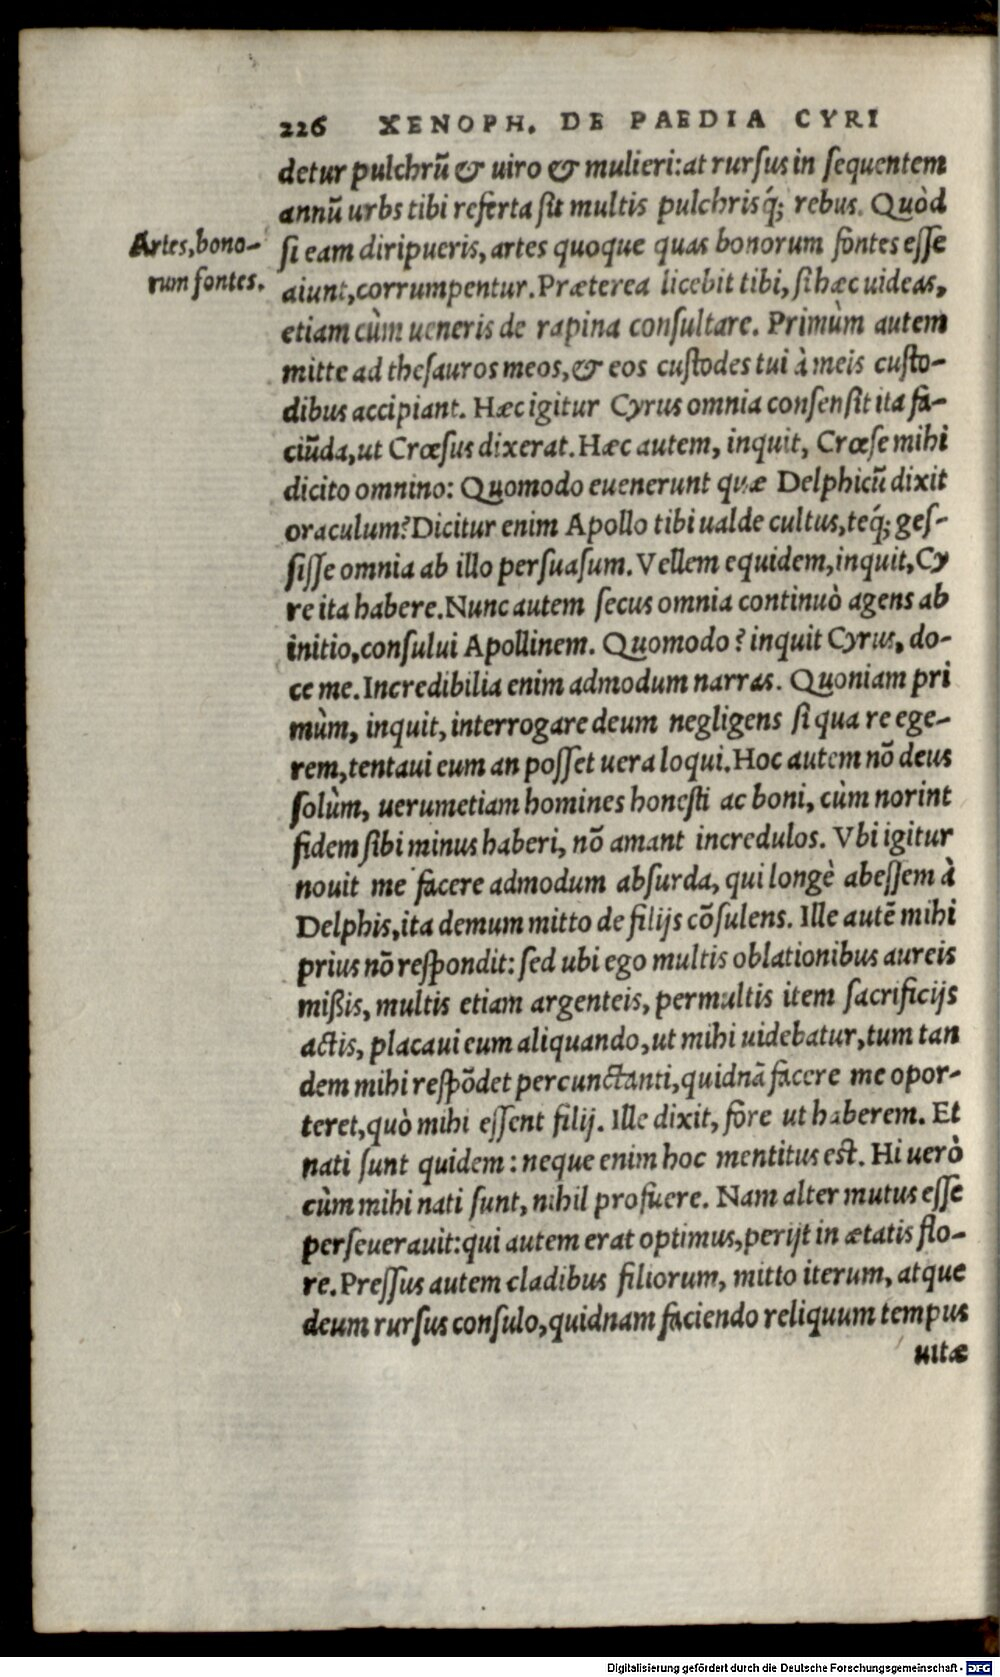 226 XENOPH. DE PAEDIA CYRI
detur pulchrū & uiro & mulieri: at rursus in sequentem
annū urbs tibi referta sit multis pulchrisq́; rebus. Quòd
Artes, bono-
si eam diripueris, artes quoque quas bonorum fontes esse
rum fontes.
aiunt, corrumpentur. Præterea licebit tibi, si hæc uideas,
etiam cùm ueneris de rapina consultare. Primùm autem
mitte ad thesauros meos, & eos custodes tui à meis custo-
dibus accipiant. Hæc igitur Cyrus omnia consensit ita fa-
ciūda, ut Crœsus dixerat. Hæc autem, inquit, Crœse mihi
dicito omnino: Quomodo euenerunt quæ Delphicū dixit
oraculum? Dicitur enim Apollo tibi ualde cultus, teq́; ges-
sisse omnia ab illo persuasum. Vellem equidem, inquit, Cy
re ita habere. Nunc autem secus omnia continuò agens ab
initio, consului Apollinem. Quomodo? inquit Cyrus, do-
ce me. Incredibilia enim admodum narras. Quoniam pri
mùm, inquit, interrogare deum negligens si qua re ege-
rem, tentaui eum an posset uera loqui. Hoc autem nō deus
solùm, uerumetiam homines honesti ac boni, cùm norint
fidem sibi minus haberi, nō amant incredulos. Vbi igitur
nouit me facere admodum absurda, qui longè abessem à
Delphis, ita demum mitto de filijs cōsulens. Ille autē mihi
prius nō respondit: sed ubi ego multis oblationibus aureis
mißis, multis etiam argenteis, permultis item sacrificijs
actis, placaui eum aliquando, ut mihi uidebatur, tum tan
dem mihi respōdet percunctanti, quidnā facere me opor-
teret, quò mihi essent filij. Ille dixit, fore ut haberem. Et
nati sunt quidem: neque enim hoc mentitus est. Hi uerò
cùm mihi nati sunt, nihil profuere. Nam alter mutus esse
perseuerauit: qui autem erat optimus, perijt in ætatis flo-
re. Pressus autem cladibus filiorum, mitto iterum, atque
deum rursus consulo, quidnam faciendo reliquum tempus
uitæ
Digitalisierung gefördert durch die Deutsche Forschungsgemeinschaft - DFG